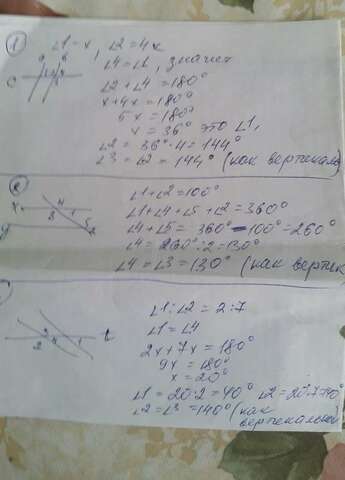 1) ∠1=x, ∠2=4x
a b
∠4=∠1, значит
c
∠2+∠4=180°
x+4x=180°
5x=180°
x=36° это ∠1,
∠2=36°·4=144°
∠3=∠2=144° (как вертикаль
2) ∠1+∠2=100°
x 4
3 1
∠1+∠4+∠5+∠2=360°
y 5
2
∠4+∠5=360°-100°=260°
∠4=260°:2=130°
∠4=∠3=130° (как вертик
∠1:∠2=2:7
∠1=∠4
3
2 4 1
2x+7x=180°
9x=180°
x=20°
∠1=20·2=40° ∠2=20·7=140°
∠2=∠3=140° (как
вертикальной